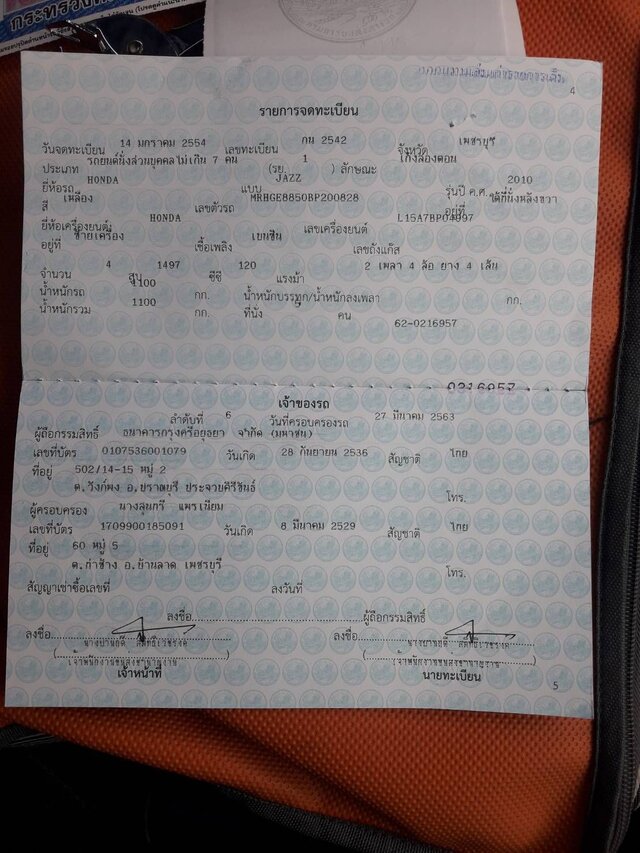 4
รายการจดทะเบียน
วันจดทะเบียน 14 มกราคม 2554 เลขทะเบียน กน 2542 จังหวัด เพชรบุรี
ประเภท รถยนต์นั่งส่วนบุคคลไม่เกิน 7 คน (รย. 1 ) ลักษณะ เก๋งสองตอน
ยี่ห้อรถ HONDA แบบ JAZZ รุ่นปี ค.ศ. 2010
สี เหลือง เลขตัวรถ MRHGE8850BP200828 อยู่ที่ ใต้ที่นั่งหลังขวา
ยี่ห้อเครื่องยนต์ HONDA เลขเครื่องยนต์ L15A7BP04097
อยู่ที่ ซ้ายเครื่อง เชื้อเพลิง เบนซิน เลขถังแก๊ส
จำนวน 4 สูบ 1497 ซีซี 120 แรงม้า 2 เพลา 4 ล้อ ยาง 4 เส้น
น้ำหนักรถ 1100 กก. น้ำหนักบรรทุก/น้ำหนักลงเพลา กก.
น้ำหนักรวม 1100 กก. ที่นั่ง คน
62-0216957
0216957
เจ้าของรถ
ลำดับที่ 6 วันที่ครอบครองรถ 27 มีนาคม 2563
ผู้ถือกรรมสิทธิ์ ธนาคารกรุงศรีอยุธยา จำกัด (มหาชน)
เลขที่บัตร 0107536001079 วันเกิด 28 กันยายน 2536 สัญชาติ ไทย
ที่อยู่ 502/14-15 หมู่ 2
ต.วังก์พง อ.ปราณบุรี ประจวบคีรีขันธ์ โทร.
ผู้ครอบครอง นางสุนทรี แพรเนียม
เลขที่บัตร 1709900185091 วันเกิด 8 มีนาคม 2529 สัญชาติ ไทย
ที่อยู่ 60 หมู่ 5
ต.ท่าช้าง อ.บ้านลาด เพชรบุรี โทร.
สัญญาเช่าซื้อเลขที่ ลงวันที่
ลงชื่อ ผู้ถือกรรมสิทธิ์
ลงชื่อ ลงชื่อ
เจ้าหน้าที่ นายทะเบียน
5